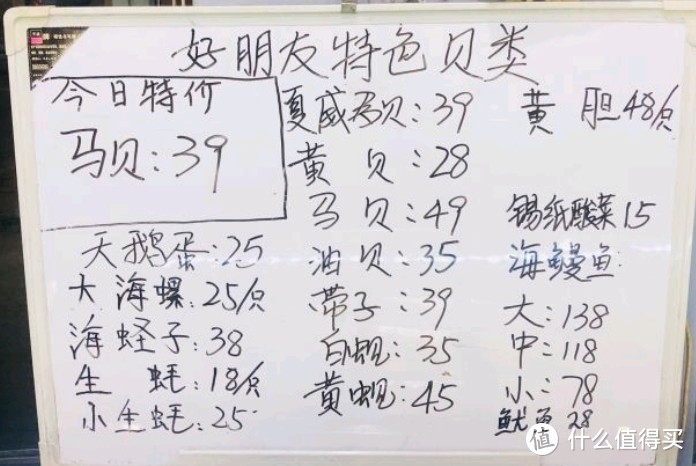 好朋友特色贝类
今日特价
马贝:39
天鹅蛋:25
大海螺:25/只
海蛏子:38
生蚝:18/只
小生蚝:25
夏威夷贝:39
黄贝:28
马贝:49
油贝:35
带子:39
白蚬:35
黄蚬:45
黄胆48/只
锡纸酸菜15
海鳗鱼:
大:138
中:118
小:78
鱿鱼28
值 什么值得买